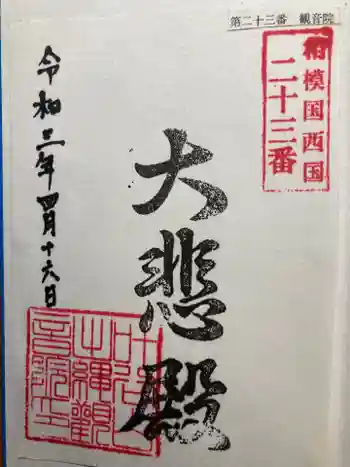 第二十三番 観音院
相模国西国
二十三番
大悲殿
令和三年四月十六日